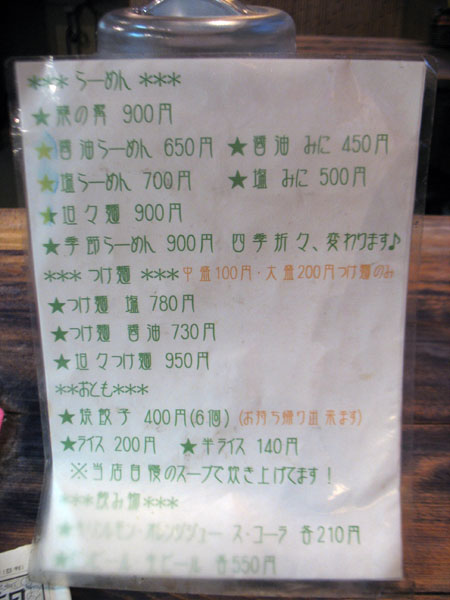 *** らーめん ***
★旅の宵 900円
★醤油らーめん 650円 ★醤油 みに 450円
★塩らーめん 700円 ★塩 みに 500円
★坦々麺 900円
★季節らーめん 900円 四季折々、変わります♪
*** つけ麺 *** 中盛100円・大盛200円つけ麺のみ
★つけ麺 塩 780円
★つけ麺 醤油 730円
★坦々つけ麺 950円
**おとも***
★焼餃子 400円(6個) (お持ち帰り出来ます)
★ライス 200円 ★半ライス 140円
※当店自慢のスープで炊き上げてます!
***飲み物***
オレンジジュース・コーラ 各210円
ビール 各550円